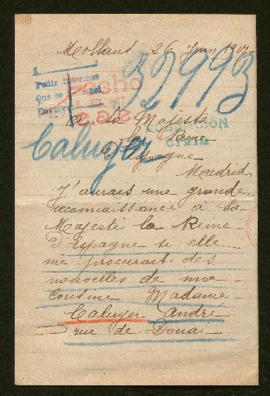 Molland 26 Juin 1917
32993
Pedir informes
Que se
Devolver
A sa Majesté
la Reine
d'Espagne
CIVIL
Caluyer
Madrid
J'aurais une grande
reconnaissance à Sa
Majesté la Reine
d'Espagne si elle
me procurait des
nouvelles de ma
cousine Madame
Caluyer André
rue de Douai